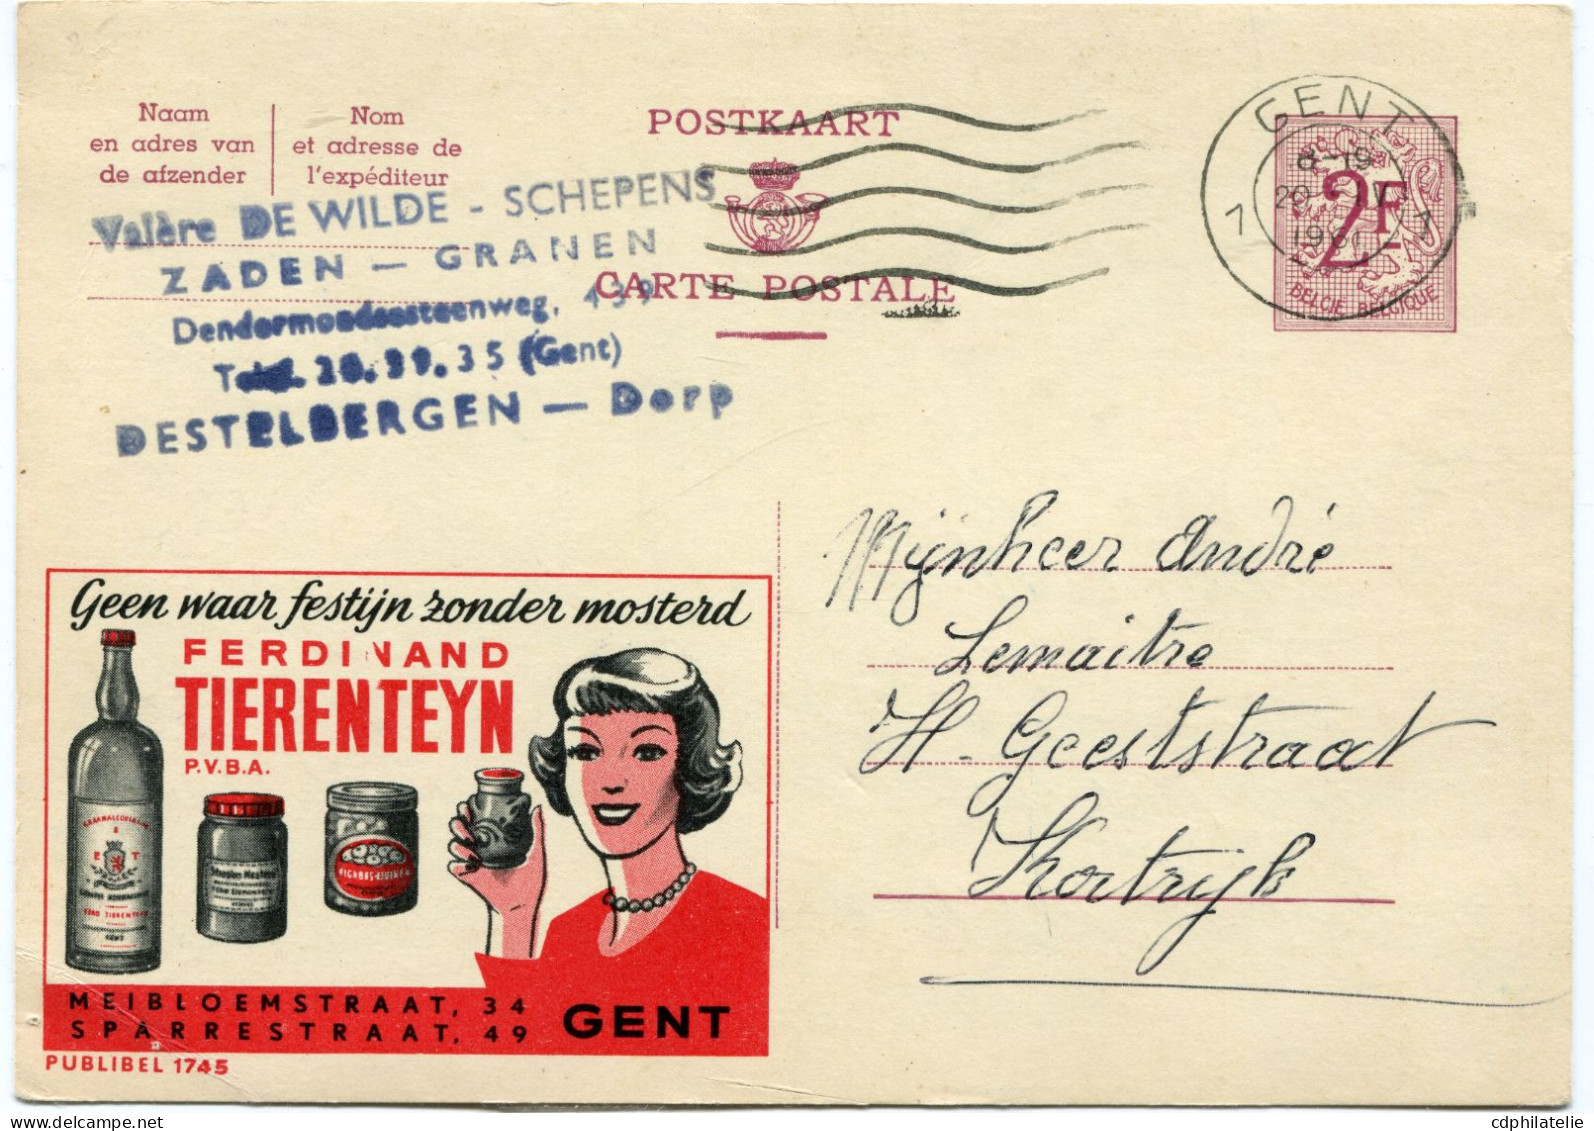 Naam
en adres van
de afzender
Nom
et adresse de
l'expéditeur
POSTKAART
CARTE POSTALE
GENT
1961
2F
BELGIE BELGIQUE
Valère DE WILDE - SCHEPENS
ZADEN — GRANEN
Dendermondesteenweg, 439
35 (Gent)
DESTELBERGEN — Dorp
Mijnheer André
Lemaitre
H. Geeststraat
Kortrijk
Geen waar festijn zonder mosterd
FERDINAND
TIERENTEYN
P.V.B.A.
E T
FERD TIERENTEYN
GENT
MEIBLOEMSTRAAT, 34
SPARRESTRAAT, 49
GENT
PUBLIBEL 1745
cdphilatelie